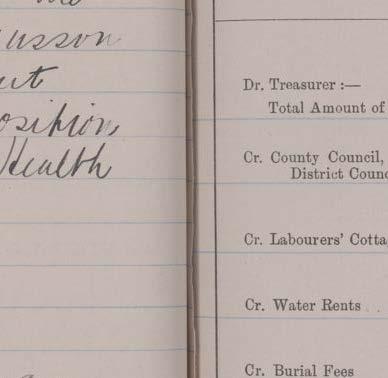 usson
ut
osition
Health
Dr. Treasurer :—
Total Amount of
Cr. County Council,
District Counc
Cr. Labourers' Cotta
Cr. Water Rents . .
Cr. Burial Fees